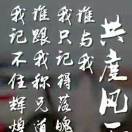 我记不住辉煌
谁跟我称兄道
我只记得落魄
谁与我
共度风